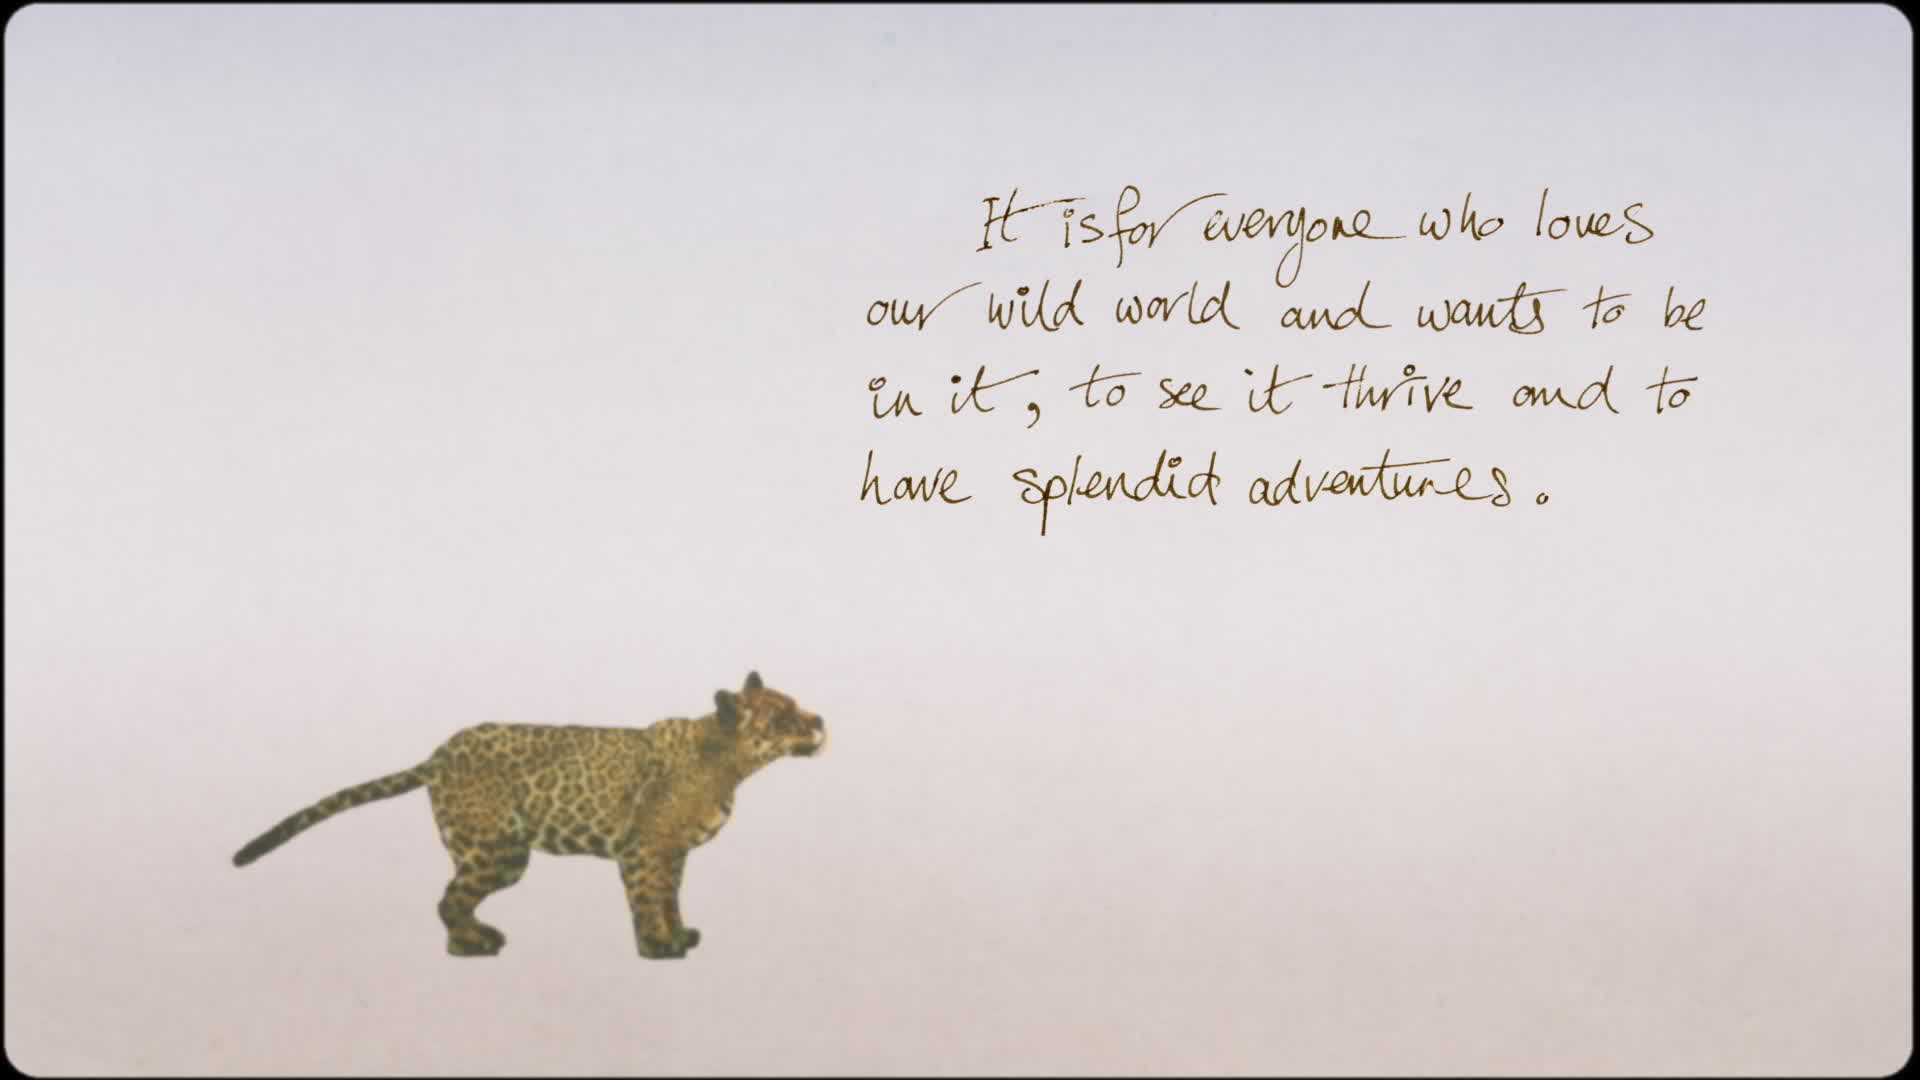 It is for everyone who loves
our wild world and wants to be
in it, to see it thrive and to
have splendid adventures.